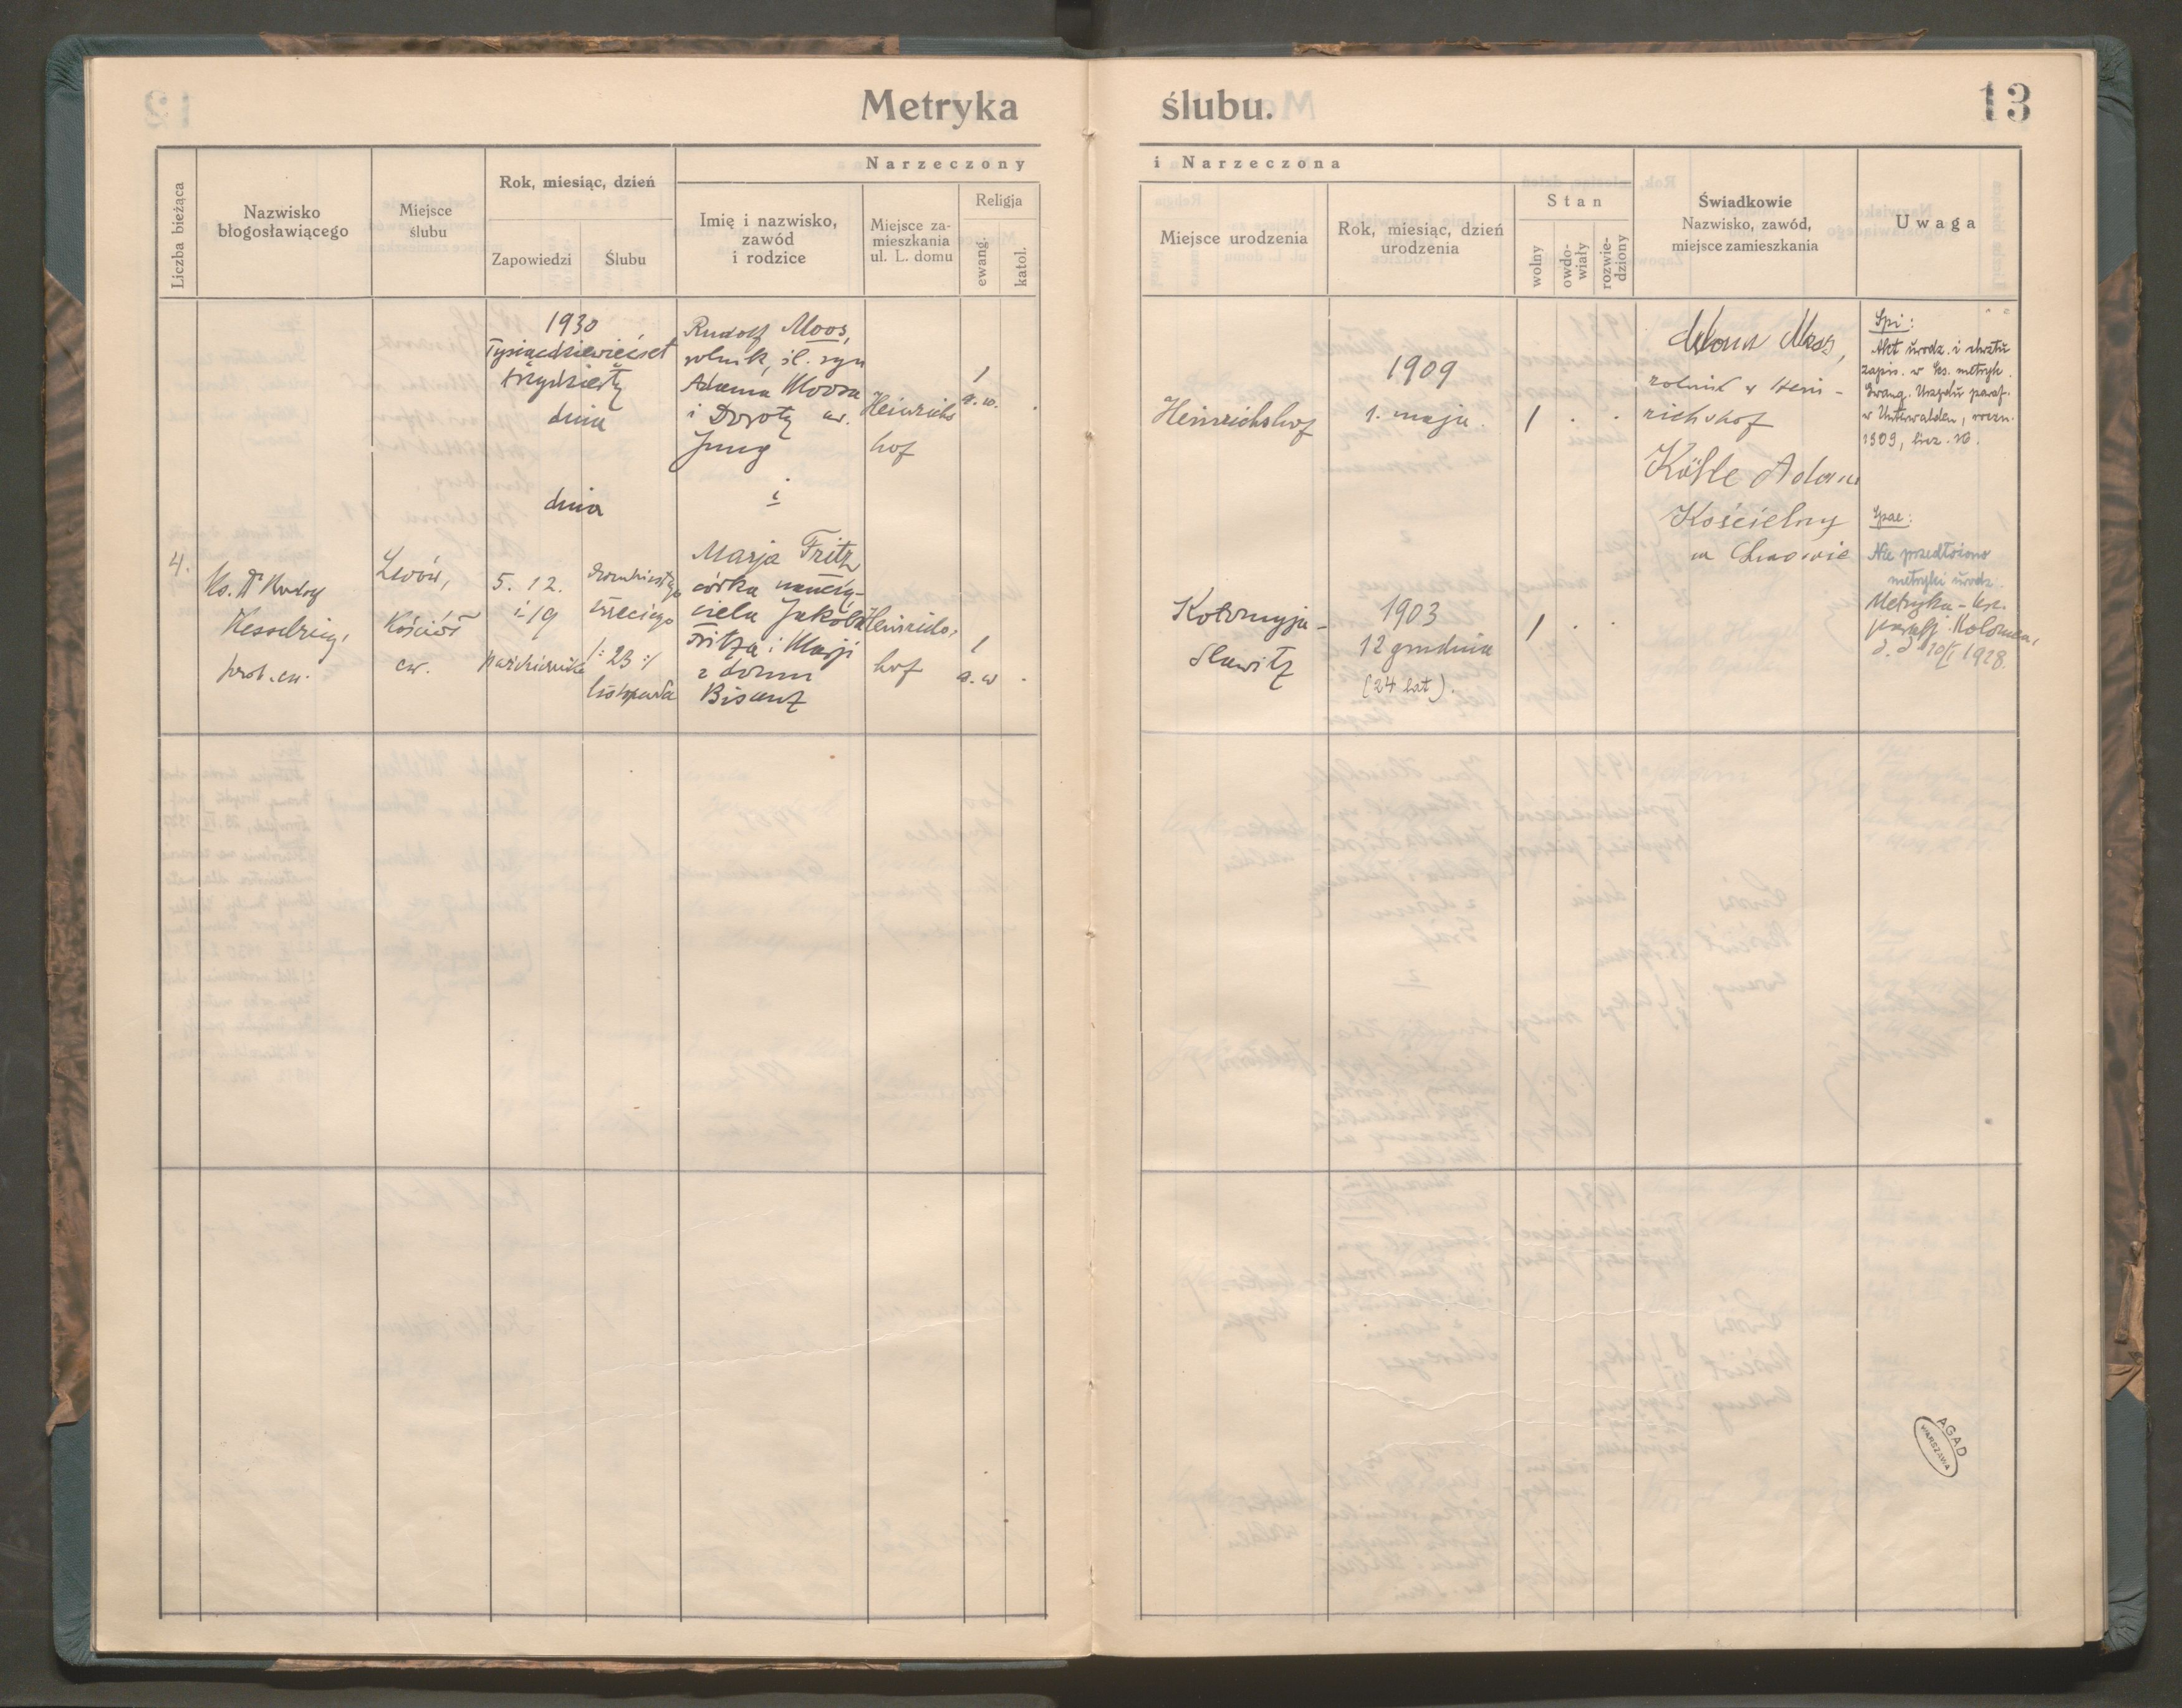 Metryka ślubu.
13
Liczba bieżąca
Nazwisko
błogosławiącego
Miejsce
ślubu
Rok, miesiąc, dzień
Zapowiedzi
Ślubu
Narzeczony
Imię i nazwisko,
zawód
i rodzice
Miejsce za-
mieszkania
ul. L. domu
Religja
ewang.
katol.
i Narzeczona
Miejsce urodzenia
Rok, miesiąc, dzień
urodzenia
Stan
wolny
owdo-
wiały
rozwie-
dziony
Świadkowie
Nazwisko, zawód,
miejsce zamieszkania
Uwaga
1930
Tysiącdziewięćset
trzydziesty
dnia
dnia
Rudolf Moos,
rolnik, śl. syn
Adama Moosa
i Doroty ur.
Jung
i
Heinrichs
hof
1
a. w.
Heinrichshof
1909
1. maja
1
Moos,
rolnik w Hein-
richshof
Köhle Adam
Kościelny
we Lwowie
Spi:
Akt urodz. i chrztu
zapis. w ks. metryk.
Ewang. Urzędu paraf.
w Unterwalden, roczn.
1909, licz. 16.
4.
Ks. Dr Rudolf
Kesselring,
prob. ew.
Lwów,
Kościół
ew.
5. 12.
i 19
października
dwudziestego
trzeciego
/: 23 :/
listopada
Marja Fritz
córka nauczy-
ciela Jakóba
Fritza i Marji
z domu
Bisanz
Heinrichs,
hof
1
a. w.
Kołomyja -
Slawitz
1903
12 grudnia
(24 lat).
1
Spae:
Nie przedłożono
metryki urodz.
Metryka - kr.
paraf. Kolomea,
d. d. 10/I 1928.
AGAD
WARSZAWA